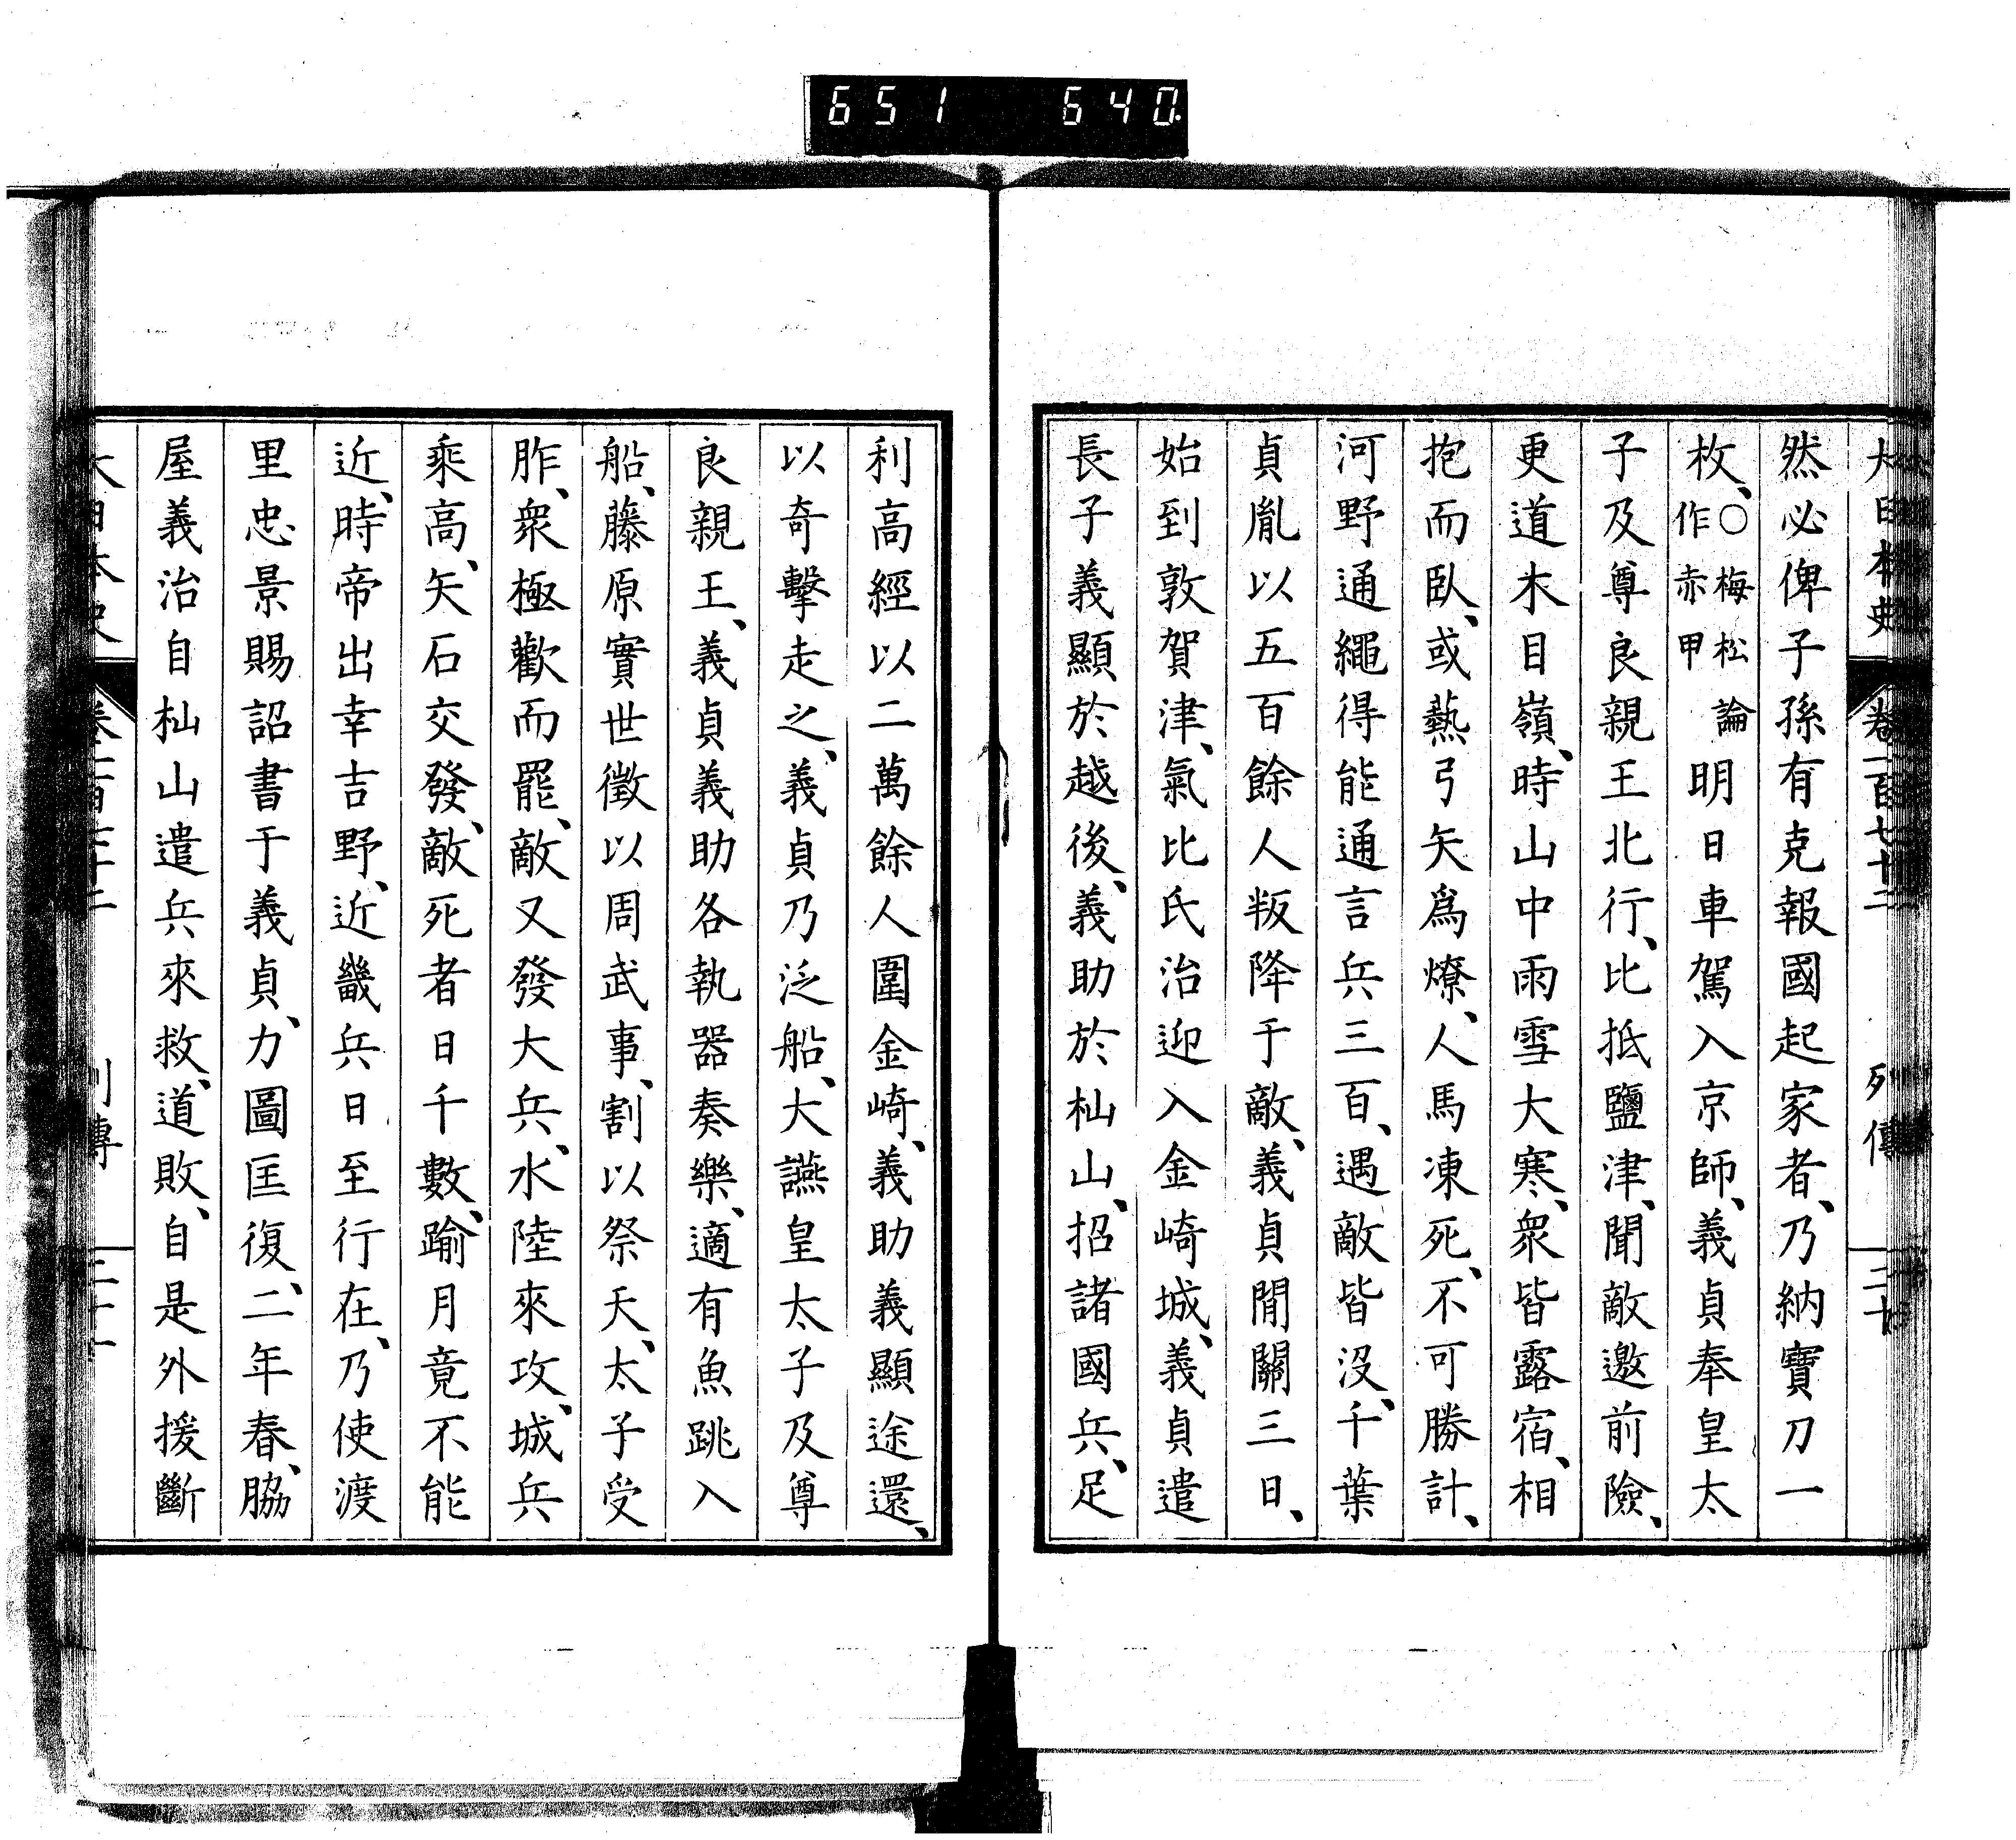 651 640
大日本史 卷一百七十二 列傳 二十
然必俾子孫有克報國起家者、乃納寶刀一
枚、○梅松論作赤甲明日車駕入京師、義貞奉皇太
子及尊良親王北行、比抵鹽津、聞敵邀前險、
更道木目嶺、時山中雨雪大寒、衆皆露宿、相
抱而臥、或爇弓矢爲燎、人馬凍死、不可勝計、
河野通繩得能通言兵三百、遇敵皆沒、千葉
貞胤以五百餘人叛降于敵、義貞間關三日、
始到敦賀津、氣比氏治迎入金崎城、義貞遣
長子義顯於越後、義助於杣山、招諸國兵、足
利高經以二萬餘人圍金崎、義助義顯途還、
以奇擊走之、義貞乃泛船、大讌皇太子及尊
良親王、義貞義助各執器奏樂、適有魚跳入
船、藤原實世徵以周武事、割以祭天、太子受
胙、衆極歡而罷、敵又發大兵、水陸來攻、城兵
乘高、矢石交發、敵死者日千數、踰月竟不能
近、時帝出幸吉野、近畿兵日至行在、乃使渡
里忠景賜詔書于義貞、力圖匡復、二年春、脇
屋義治自杣山遣兵來救、道敗、自是外援斷